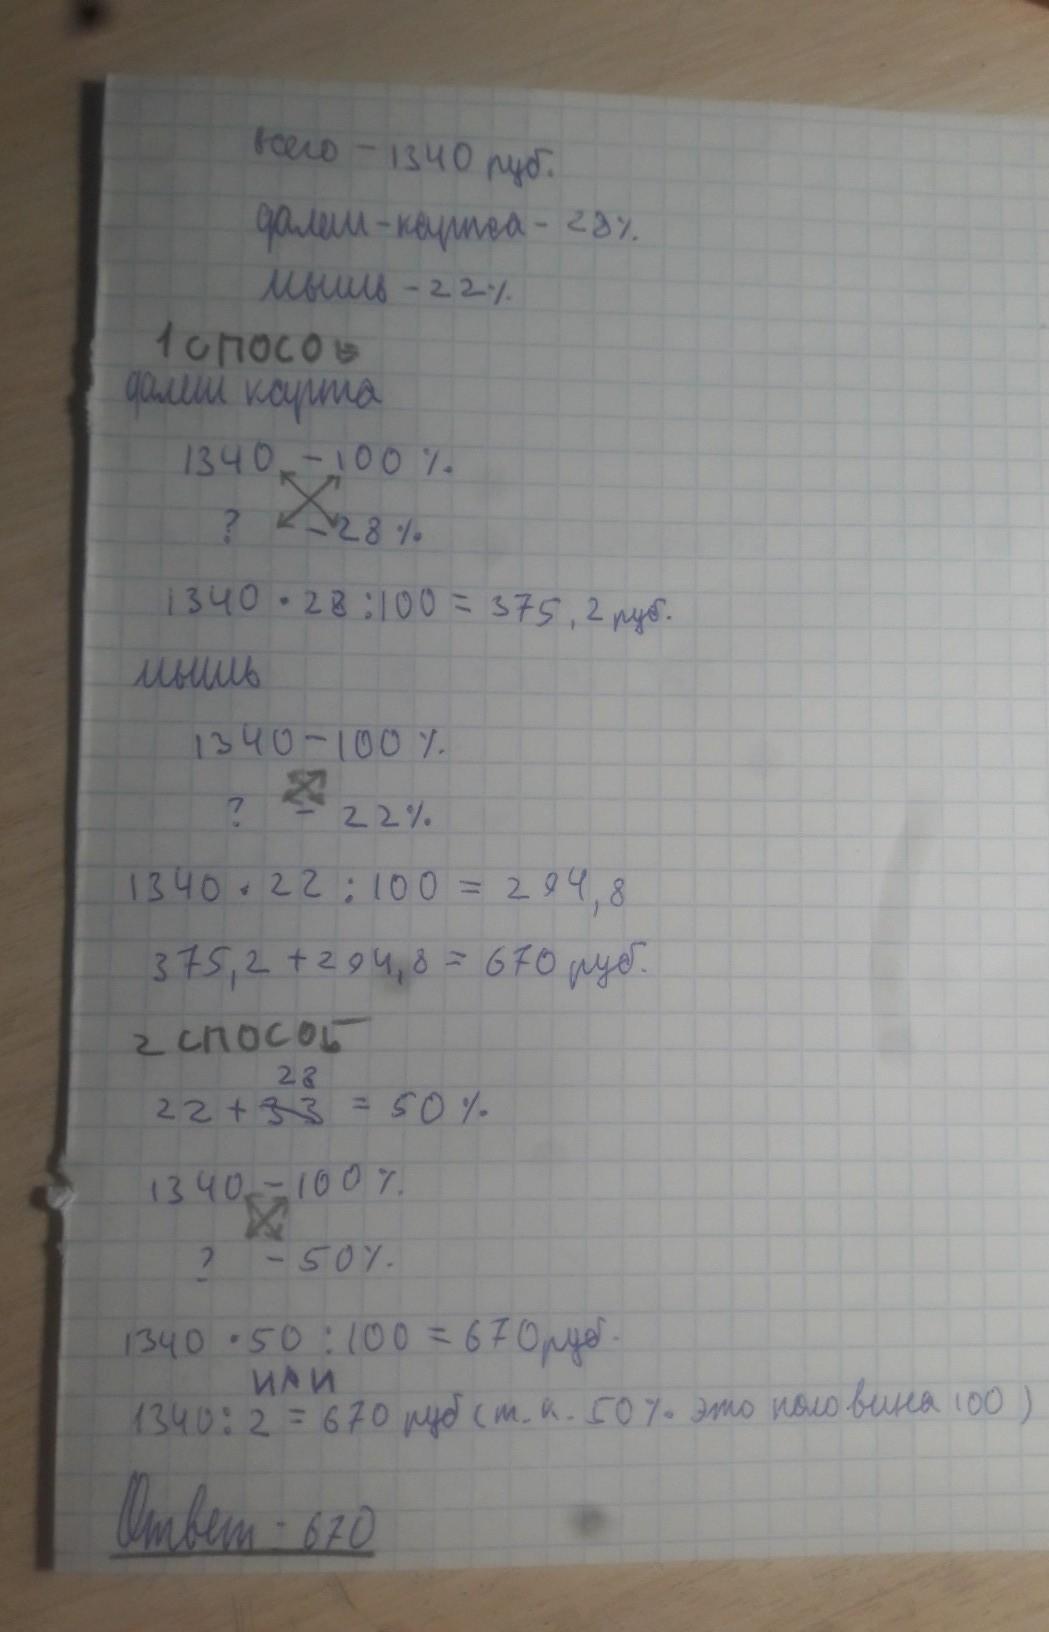 всего - 1340 руб.
флеш-карта - 28%.
мышь - 22%
1 способ
флеш карта
1340 - 100%.
? - 28%.
1340 · 28 : 100 = 375,2 руб.
мышь
1340 - 100%.
? - 22%.
1340 · 22 : 100 = 294,8
375,2 + 294,8 = 670 руб.
2 способ
28
22 + 33 = 50%.
1340 - 100%.
? - 50%.
1340 · 50 : 100 = 670 руб.
или
1340 : 2 = 670 руб (т.к. 50% это половина 100)
Ответ - 670